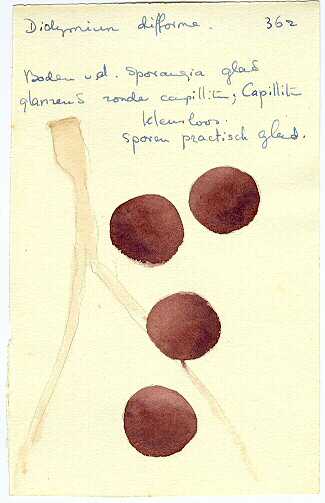 Didymium difforme. 362
Boden v.d. Sporangia glad
glanzend zonder capillit; Capillit
kleurloos.
Sporen practisch glad.